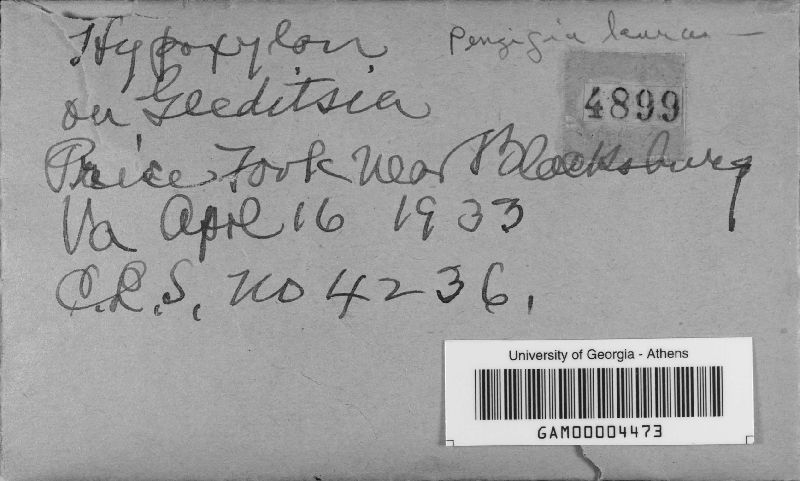 Hypoxylon
Penzigia
4899
on Gleditsia
Price Fork Near Blacksburg
Va April 16 1933
C.L.S. No 4236.
University of Georgia - Athens
GAM00004473